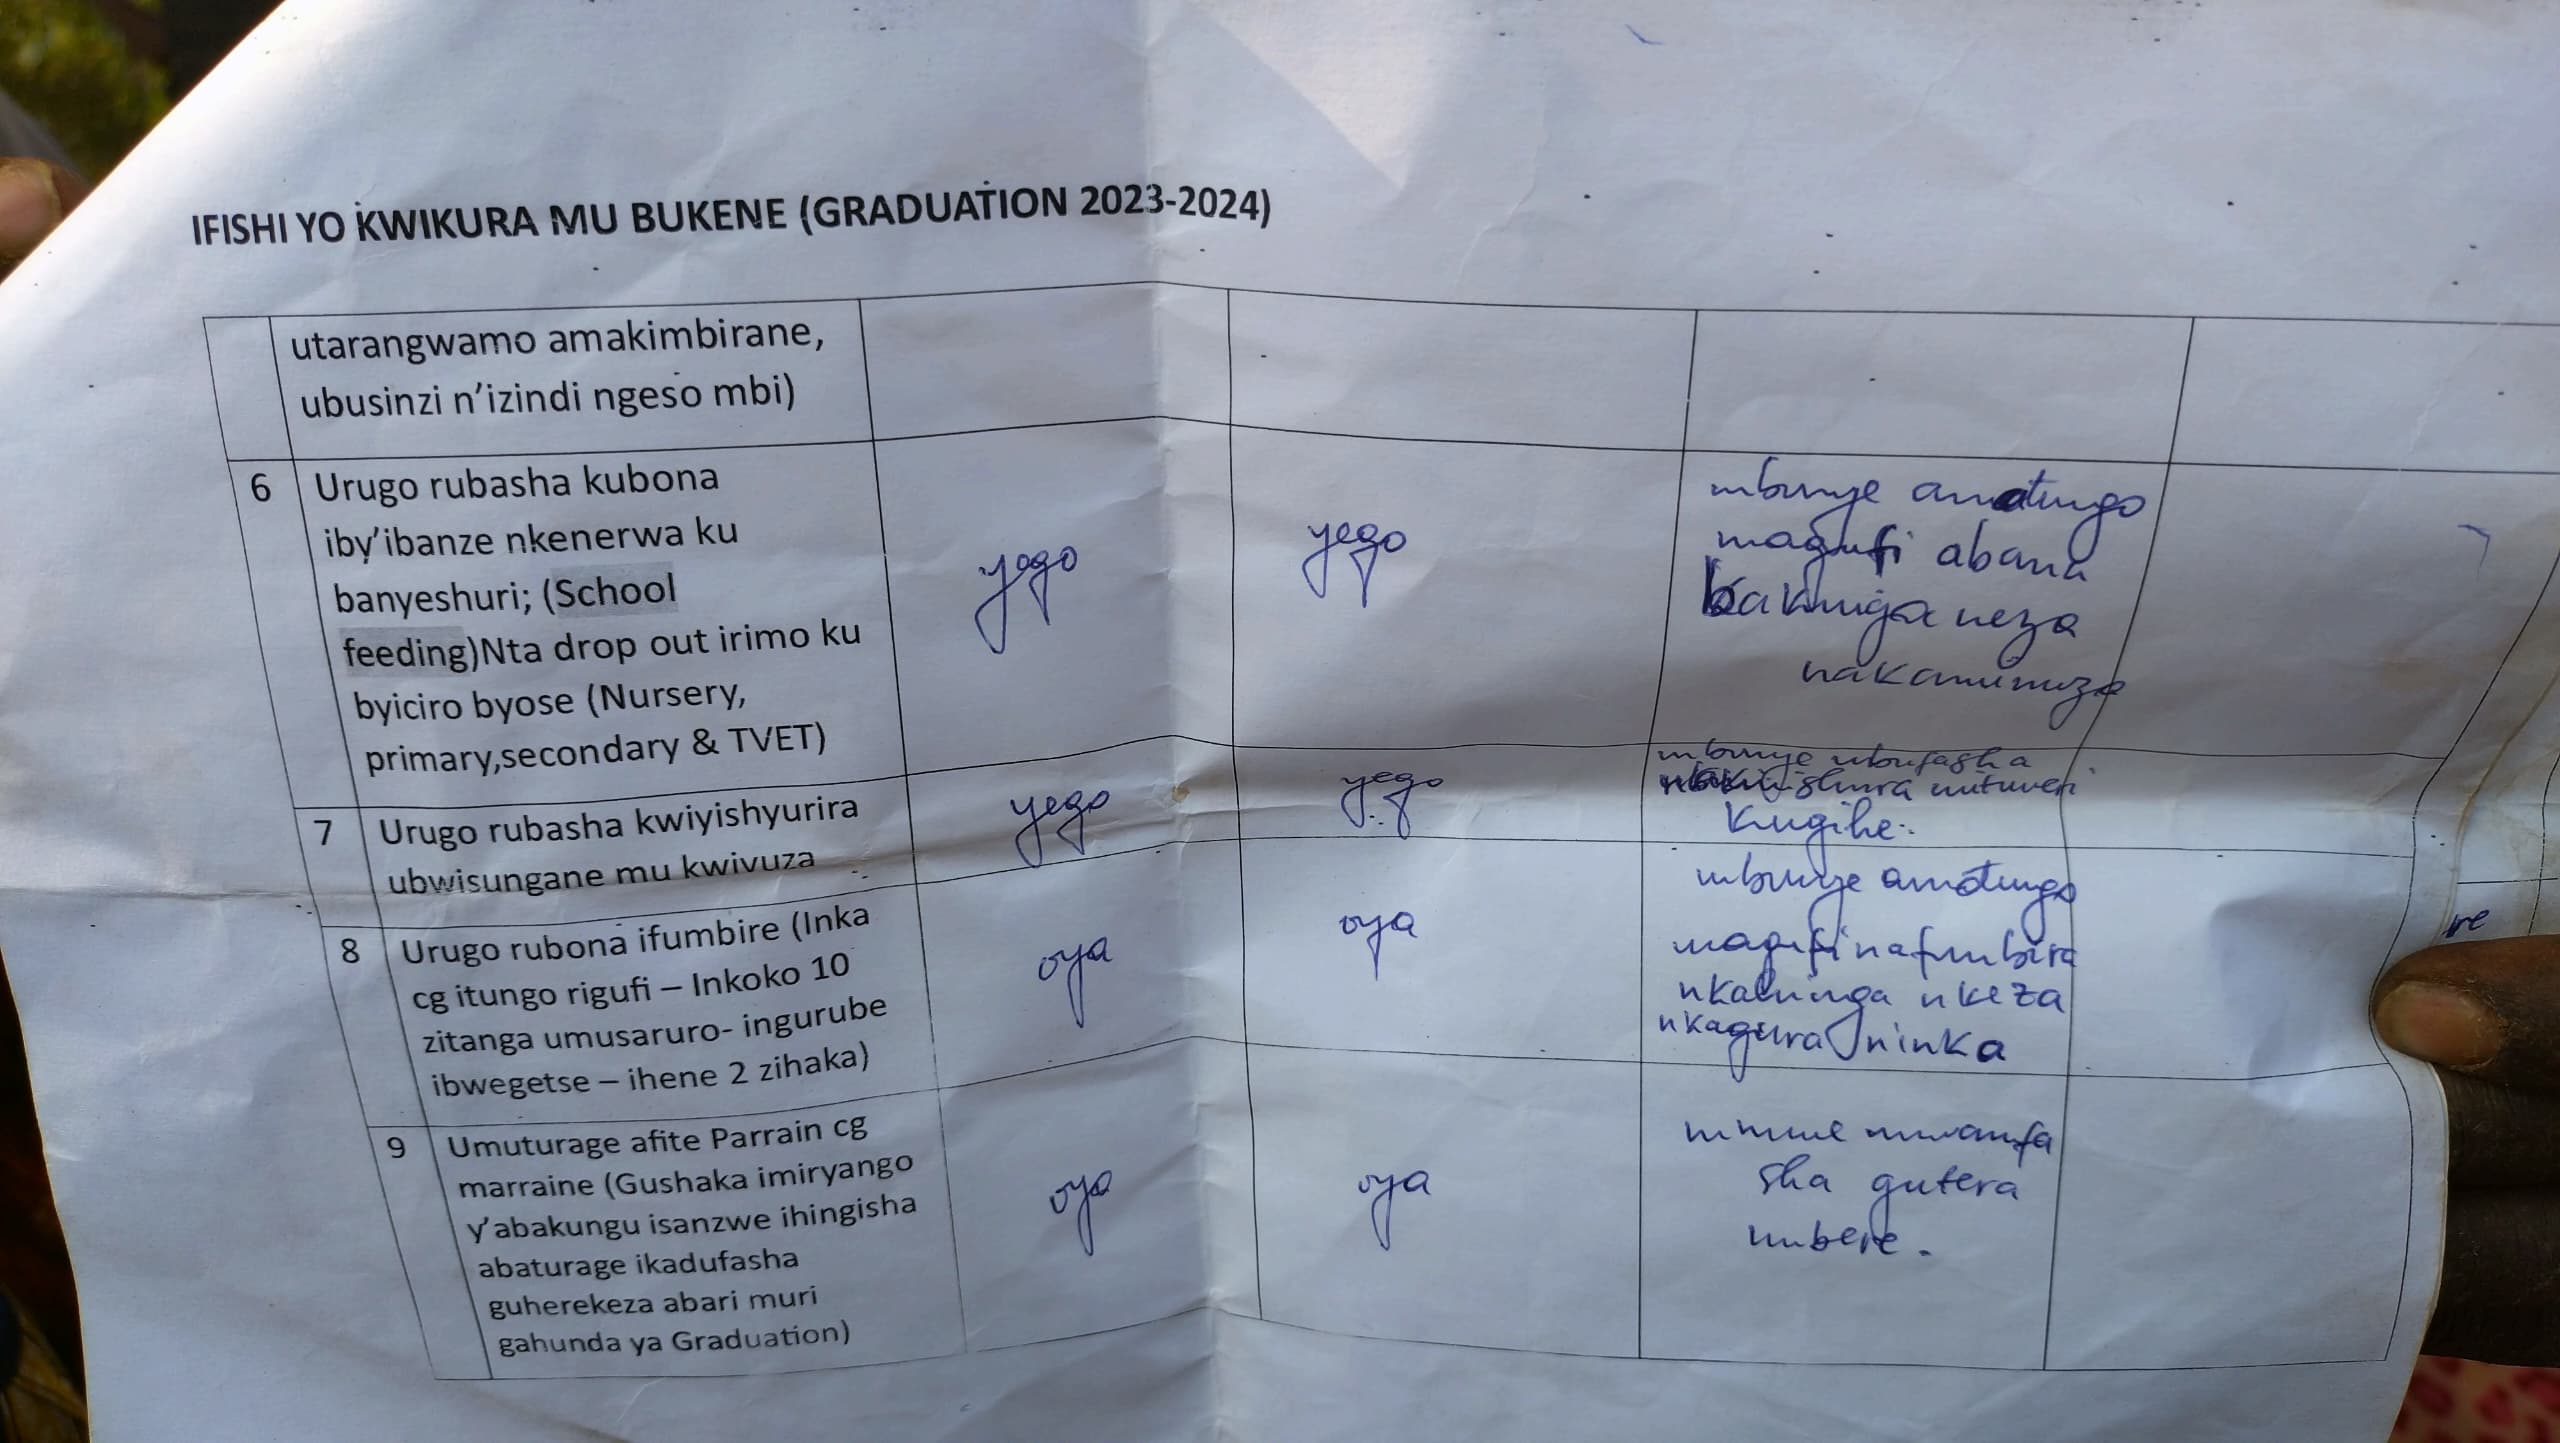 IFISHI YO KWIKURA MU BUKENE (GRADUATION 2023-2024)
utarangwamo amakimbirane,
ubusinzi n'izindi ngeso mbi)
6
Urugo rubasha kubona
iby'ibanze nkenerwa ku
banyeshuri; (School
feeding)Nta drop out irimo ku
byiciro byose (Nursery,
primary,secondary & TVET)
yego
yego
mbunye amatungo
magufi abana
bakwiga neza
nakaminuza
7
Urugo rubasha kwiyishyurira
ubwisungane mu kwivuza
yego
yego
mbunye ubufasha
mituweri
kugihe.
8
Urugo rubona ifumbire (Inka
cg itungo rigufi – Inkoko 10
zitanga umusaruro- ingurube
ibwegetse – ihene 2 zihaka)
oya
oya
mbunye amatungo
magufi nafumbira
nkahinga nkeza
nkagura ninka
9
Umuturage afite Parrain cg
marraine (Gushaka imiryango
y'abakungu isanzwe ihingisha
abaturage ikadufasha
guherekeza abari muri
gahunda ya Graduation)
oya
oya
mwamfa
sha gutera
imbere.
re